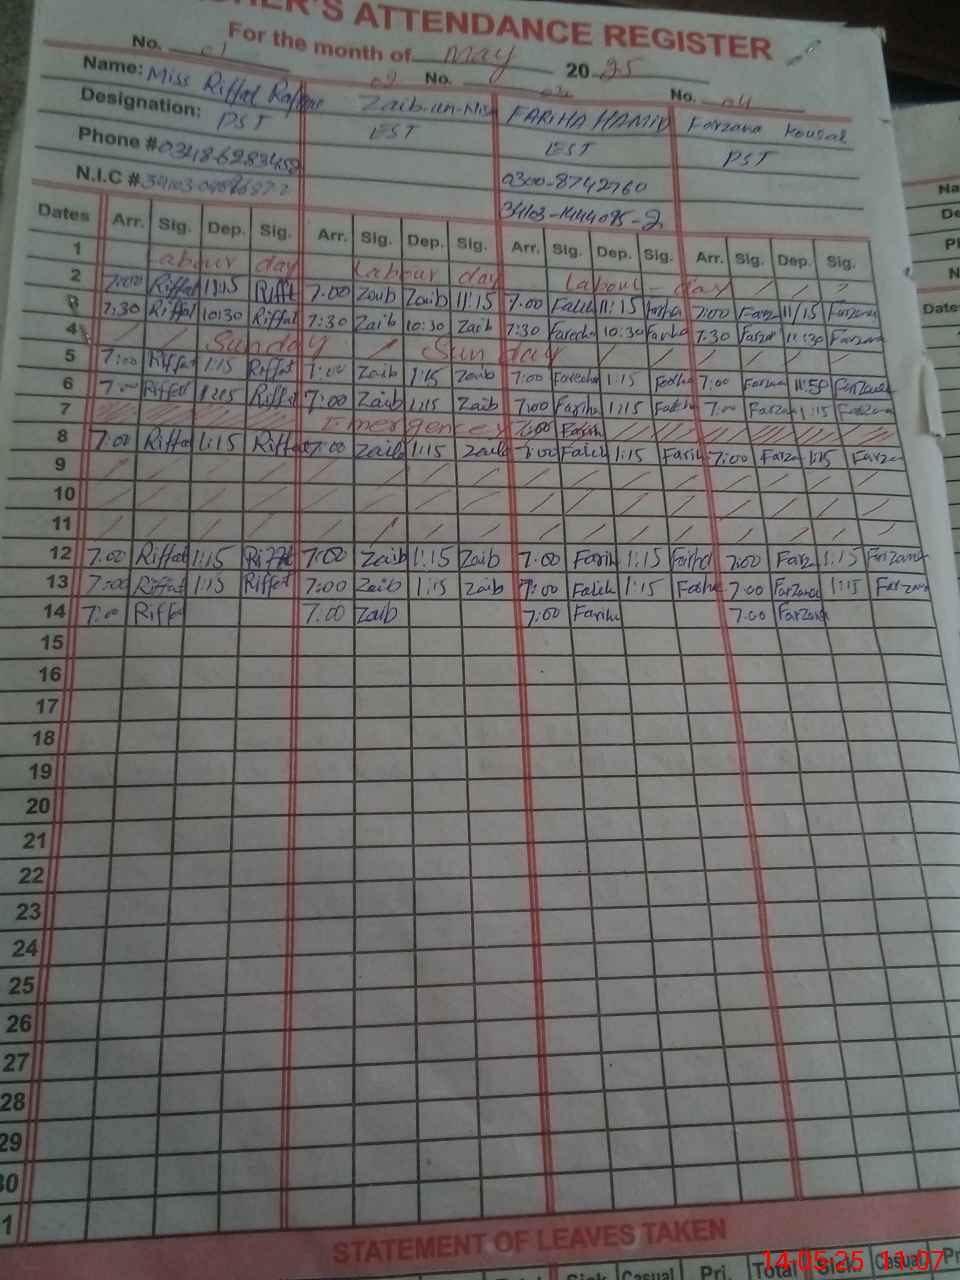 HER'S ATTENDANCE REGISTER
For the month of May 2025
No. 01 02 No. 03 No. 04
Name: Miss Riffat Zaib-un-Nisa FARIHA HAMID Farzana Kousar
Designation: PST EST EST PST
Phone # 03486283452 0300-8742760
N.I.C #
Dates Arr. Sig. Dep. Sig. Arr. Sig. Dep. Sig. Arr. Sig. Dep. Sig. Arr. Sig. Dep. Sig.
1 Labour day Labour day Labour - day
2 7:00 Riffat 11:15 Riffat 7:00 Zaib Zaib 11:15 7:00 11:15 Fariha 7:00 Farz 11/15 Farzana
3 7:30 Riffat 10:30 Riffat 7:30 Zaib 10:30 Zaib 7:30 10:30 Fariha 7:30 Farza Farzana
4 Sunday Sunday
5 7:00 Riffat 1:15 Riffat 7:00 Zaib 1:15 Zaib 7:00 1:15 7:00 11:50 Farzana
6 7:00 Riffat Riffat 7:00 Zaib 1:15 Zaib 7:00 Fariha 1:15 7:00 Farzan 1:15 Farzana
7 Emergency 7:00
8 7:00 Riffat 1:15 Riffat 7:00 Zaib 1:15 Zaib 7:00 1:15 Fariha 7:00 Farza 1:15 Farza
9
10
11
12 7:00 Riffat 1:15 Riffat 7:00 Zaib 1:15 Zaib 7:00 Fariha 1:15 Fariha 7:00 Farz 1:15 Farzana
13 7:00 Riffat 1:15 Riffat 7:00 Zaib 1:15 Zaib 7:00 1:15 7:00 Farzana 1:15 Farzana
14 7:0 Riffat 7:00 Zaib 7:00 Fariha 7:00 Farzana
15
16
17
18
19
20
21
22
23
24
25
26
27
28
29
30
1
STATEMENT OF LEAVES TAKEN
Sick Casual Pri. Total Sick Casual Pri
14.05.25 11:07
Na
De
Pl
N
Dates